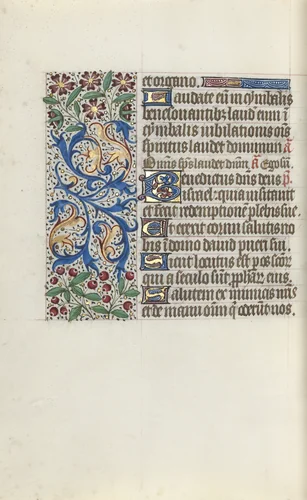 et organo.
Laudate eū in cymbalis
benesonantibus laud eum i
cymbalis iubilationis oīs
spiritus laudet dominum a
Omīs spūs laudet dīum. A Ego sū.
Benedictus dn̄s deus
israel: quia uisitauit
et fecit redemptionē plebis sue
Et erexit cornu salutis no
bis: in domo dauid pueri sui.
Sicut locutus est per os scōr̄
qui a seculo sūt pphar̄ eius.
Salutem ex inimicis nr̄is
et de manu oīm q̄ oderūt nos.